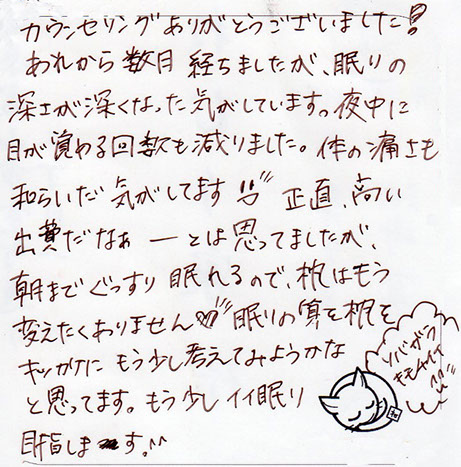 カウンセリングありがとうございました!
あれから数日 経ちましたが、眠りの
深さが深くなった気がしています。夜中に
目が覚める回数も減りました。体の痛さも
和らいだ気がしてます 正直、高い
出費だなぁーとは思ってましたが、
朝までぐっすり眠れるので、枕はもう
変えたくありません♡ 眠りの質を枕を
キッカケに もう少し考えてみようかな
と思ってます。もう少しイイ眠り
目指します。^^
ソバガラ
キモチイイ